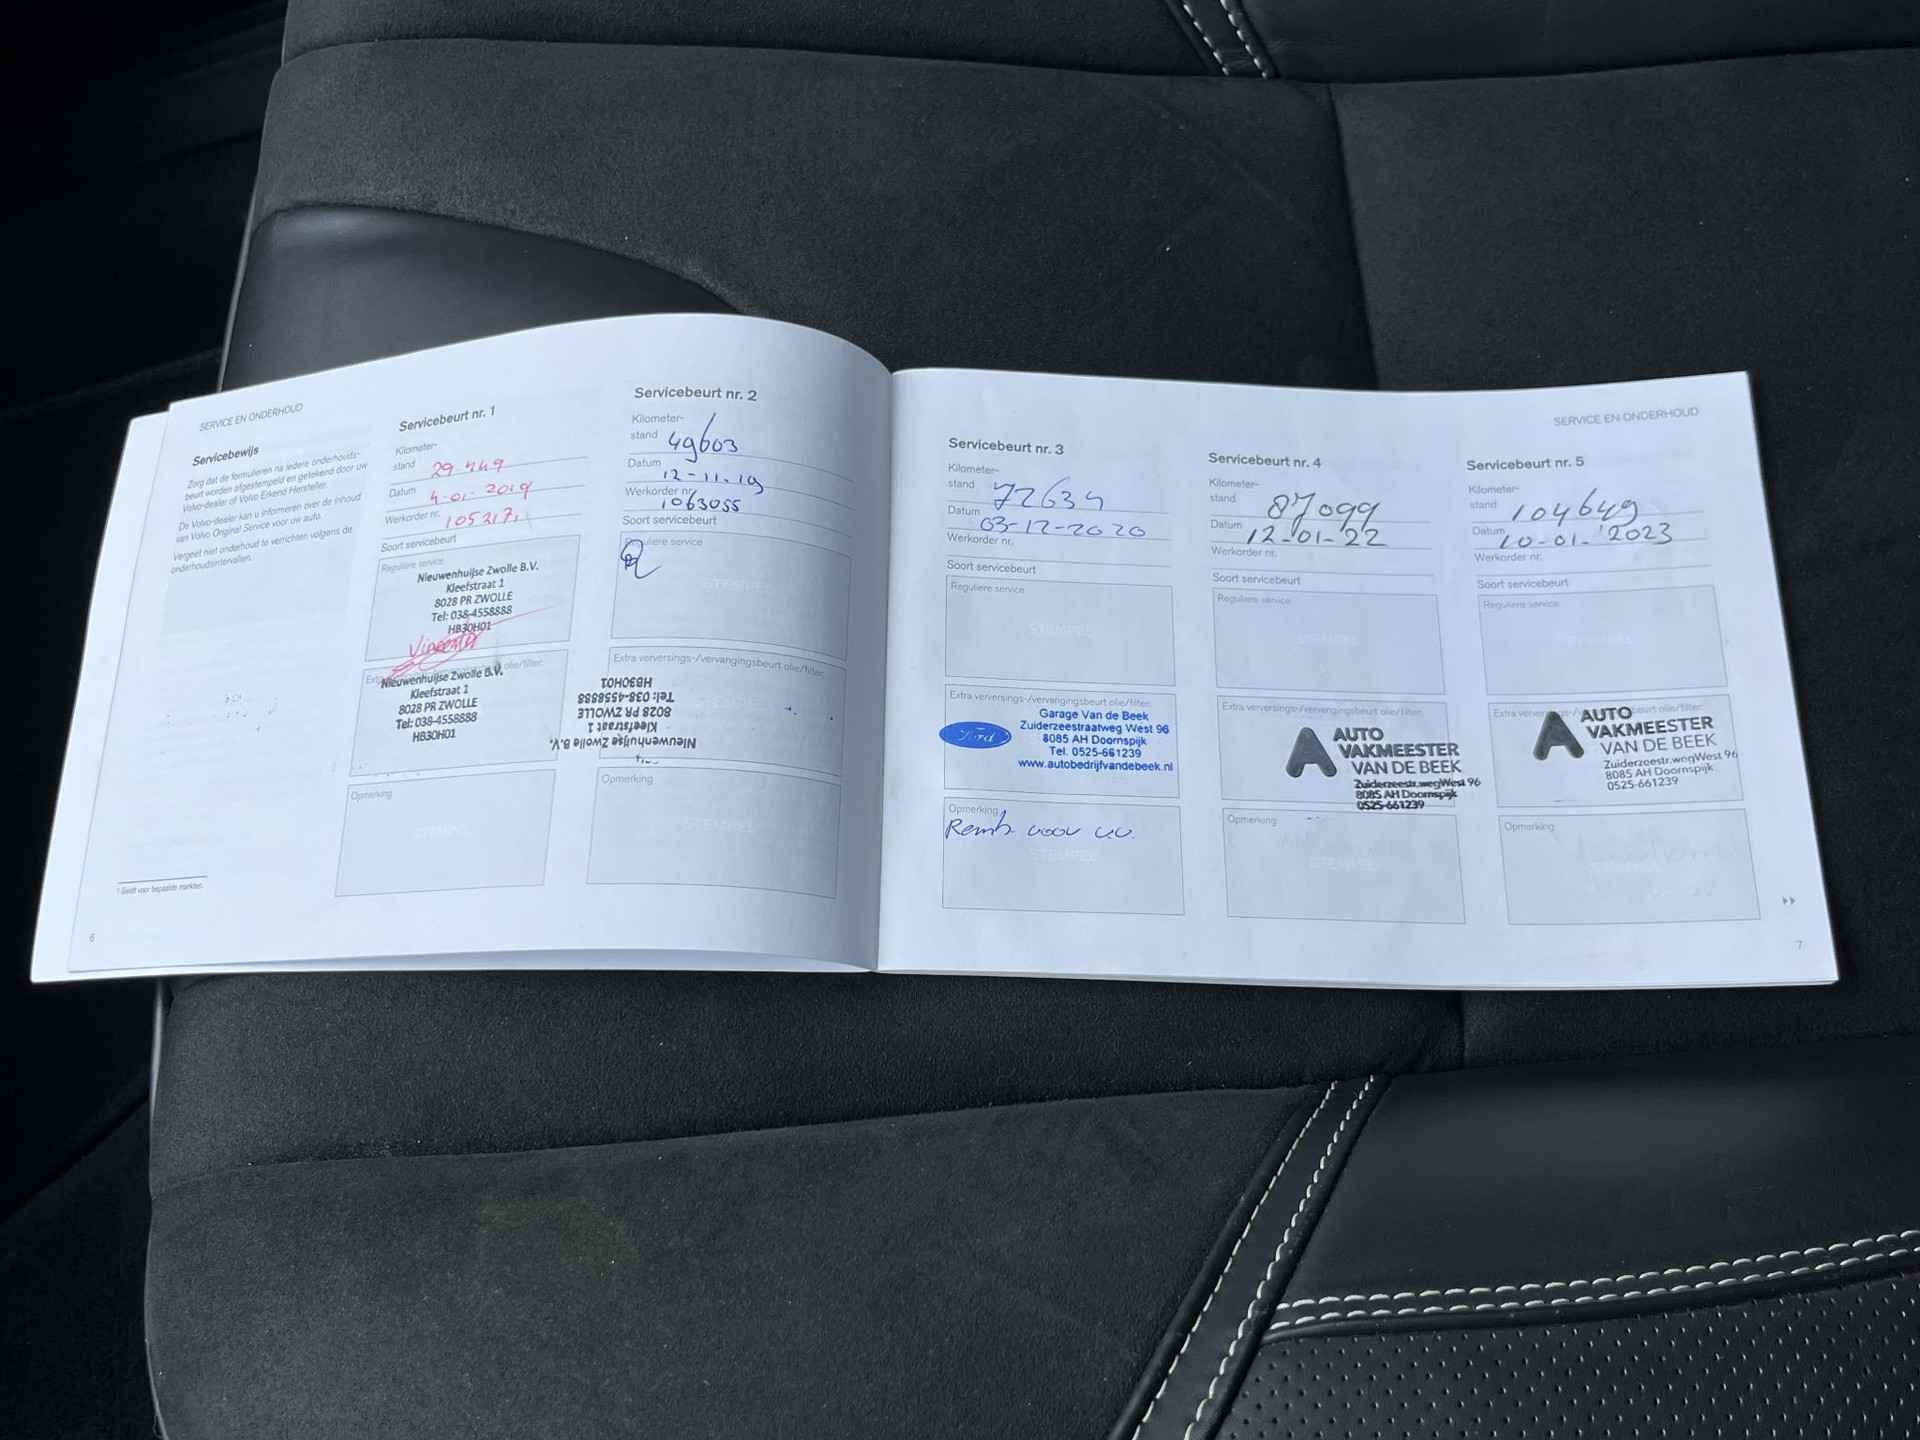 SERVICE EN ONDERHOUD
Servicebewijs
Zorg dat de formulieren na iedere onderhouds-
beurt worden afgestempeld en getekend door uw
Volvo-dealer of Volvo Erkend Hersteller.
De Volvo-dealer kan u informeren over de inhoud
van Volvo Original Service voor uw auto.
Vergeet niet onderhoud te verrichten volgens de
onderhoudsintervallen.
1 Geldt voor bepaalde markten.
6
Servicebeurt nr. 1
Kilometer-
stand 29 449
Datum 4-01-2019
Werkorder nr. 105217
Soort servicebeurt
Reguliere service
Nieuwenhuijse Zwolle B.V.
Kleefstraat 1
8028 PR ZWOLLE
Tel: 038-4558888
HB30H01
olie/filter:
Nieuwenhuijse Zwolle B.V.
Kleefstraat 1
8028 PR ZWOLLE
Tel: 038-4558888
HB30H01
Opmerking
STEMPEL
Servicebeurt nr. 2
Kilometer-
stand 49603
Datum 12-11-19
Werkorder nr. 1063055
Soort servicebeurt
Reguliere service
STEMPEL
Extra verversings-/vervangingsbeurt olie/filter:
Nieuwenhuijse Zwolle B.V.
Kleefstraat 1
8028 PR ZWOLLE
Tel: 038-4558888
HB30H01
Opmerking
STEMPEL
SERVICE EN ONDERHOUD
Servicebeurt nr. 3
Kilometer-
stand 72634
Datum 03-12-2020
Werkorder nr.
Soort servicebeurt
Reguliere service
STEMPEL
Extra verversings-/vervangingsbeurt olie/filter:
Ford
Garage Van de Beek
Zuiderzeestraatweg West 96
8085 AH Doornspijk
Tel. 0525-661239
www.autobedrijfvandebeek.nl
Opmerking
voor
STEMPEL
Servicebeurt nr. 4
Kilometer-
stand 87099
Datum 12-01-22
Werkorder nr.
Soort servicebeurt
Reguliere service
STEMPEL
Extra verversings-/vervangingsbeurt olie/filter:
AUTO
VAKMEESTER
VAN DE BEEK
Zuiderzeestr.wegWest 96
8085 AH Doornspijk
0525-661239
Opmerking
STEMPEL
Servicebeurt nr. 5
Kilometer-
stand 104649
Datum 10-01-'2023
Werkorder nr.
Soort servicebeurt
Reguliere service
STEMPEL
Extra olie/filter:
AUTO
VAKMEESTER
VAN DE BEEK
Zuiderzeestr.wegWest 96
8085 AH Doornspijk
0525-661239
Opmerking
STEMPEL
7